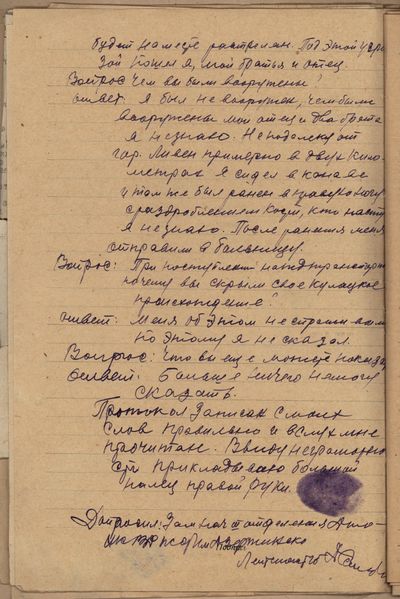 будет на месте растрелян. Под этой угро
зой пошел я, мой братья и отец.
Вопрос: Чем вы были вооружены?
ответ: Я был не вооружен, чем были
вооружены мой отец и два брата
я не знаю. Неподалеку от
гор. Ливен примерно в двух кило-
метрах я сидел в канаве
и там же был ранен в правую ногу
с раздроблением кости, кто
я не знаю. После ранения меня
отправили в больницу.
Вопрос: При поступлении на
почему вы скрыли свое кулацкое
происхождение?
ответ: Меня об этом не спрашивали
по этому я не сказал.
Вопрос: Что вы еще можете показа
Ответ: Больше ничего не могу
сказать.
Протокол записан с моих
слов правильно и вслух мне
прочитан. Ввиду неграмотно
сти прикладываю большой
палец правой руки.
Допросил: Зам нач
Лейтенант